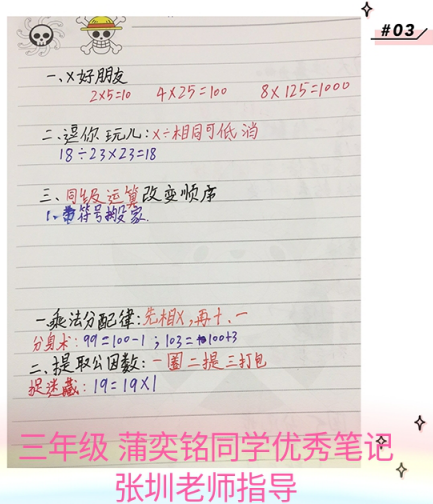 #03
一、×好朋友
2×5=10 4×25=100 8×125=1000
二、逗你玩儿:×÷相同可低消
18÷23×23=18
三、同级运算改变顺序
1、带符号搬家.
一、乘法分配律:先相×,再+、一
分身术:99=100-1;103=100+3
二、提取公因数:一圈二提三打包
捉迷藏:19=19×1
三年级 蒲奕铭同学优秀笔记
张圳老师指导